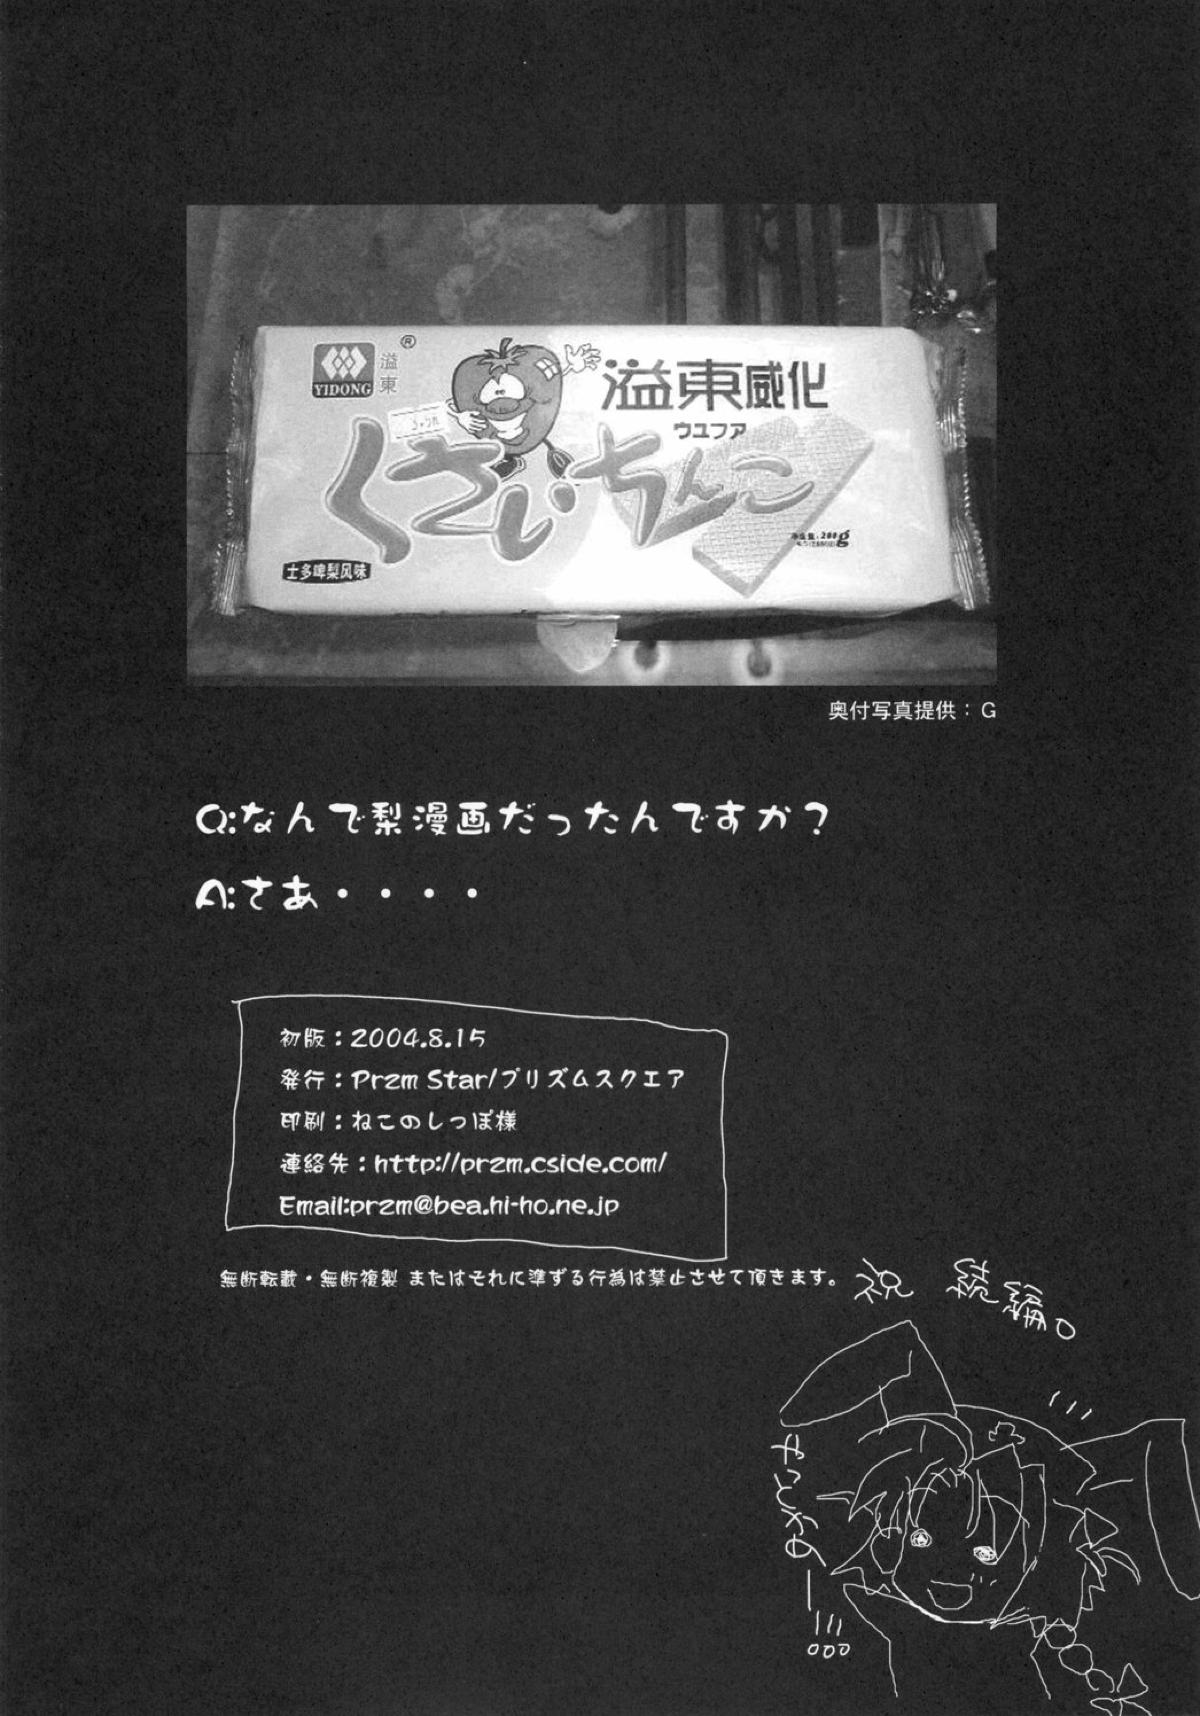 YIDONG
溢東
®
溢東威化
ウユファ
くさいちんこ
士多啤梨风味
奥付写真提供：G
Q:なんで梨漫画だったんですか？
A:さあ・・・・
初版：2004.8.15
発行：Przm Star/プリズムスクエア
印刷：ねこのしっぽ様
連絡先：http://przm.cside.com/
Email:przm@bea.hi-ho.ne.jp
無断転載・無断複製 またはそれに準ずる行為は禁止させて頂きます。
祝 続編。